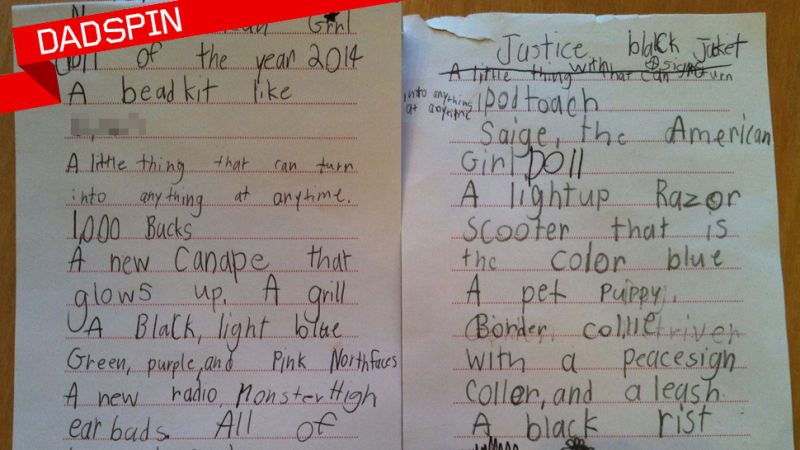 DADSPIN
Girl
of the year 2014
A bead kit like
A little thing that can turn
into anything at anytime.
1,000 Bucks
A new Canape that
glows up. A grill
A Black, light blue
Green, purple, and Pink Northfaces
A new radio, Monster High
ear bads. All of
Justice black Jacket
A little thing with that can turn
into anything
at anytime
ipod toach
Saige, the American
Girl Doll
A lightup Razor
Scooter that is
the color blue
A pet puippy.
Border, collie
with a peacesign
Coller, and a leash
A black rist